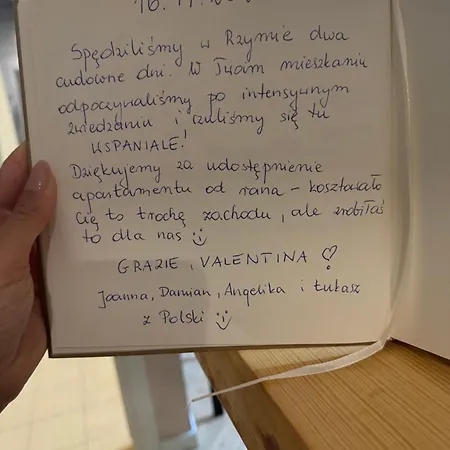 Spędziliśmy w Rzymie dwa
cudowne dni. W Twoim mieszkaniu
odpoczywaliśmy po intensywnym
zwiedzaniu i czuliśmy się tu
WSPANIALE!
Dziękujemy za udostępnienie
apartamentu od rana – kosztowało
Cię to trochę zachodu, ale zrobiłaś
to dla nas :)
GRAZIE, VALENTINA ♡
Joanna, Damian, Angelika i Łukasz
z Polski :)